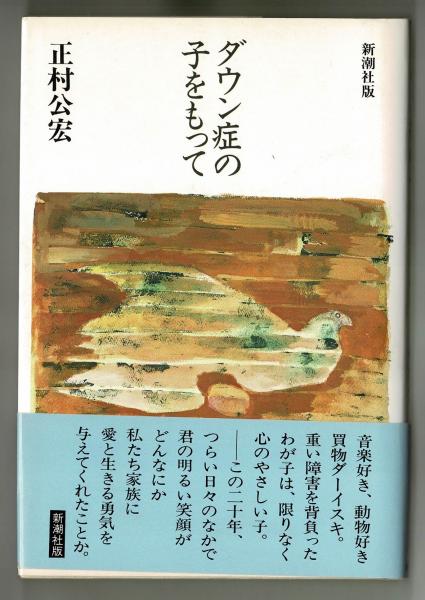 新潮社版
ダウン症の
子をもって
正村公宏
音楽好き、動物好き
買物ダーイスキ。
重い障害を背負った
わが子は、限りなく
心のやさしい子。
――この二十年、
つらい日々のなかで
君の明るい笑顔が
どんなにか
私たち家族に
愛と生きる勇気を
与えてくれたことか。
新潮社版